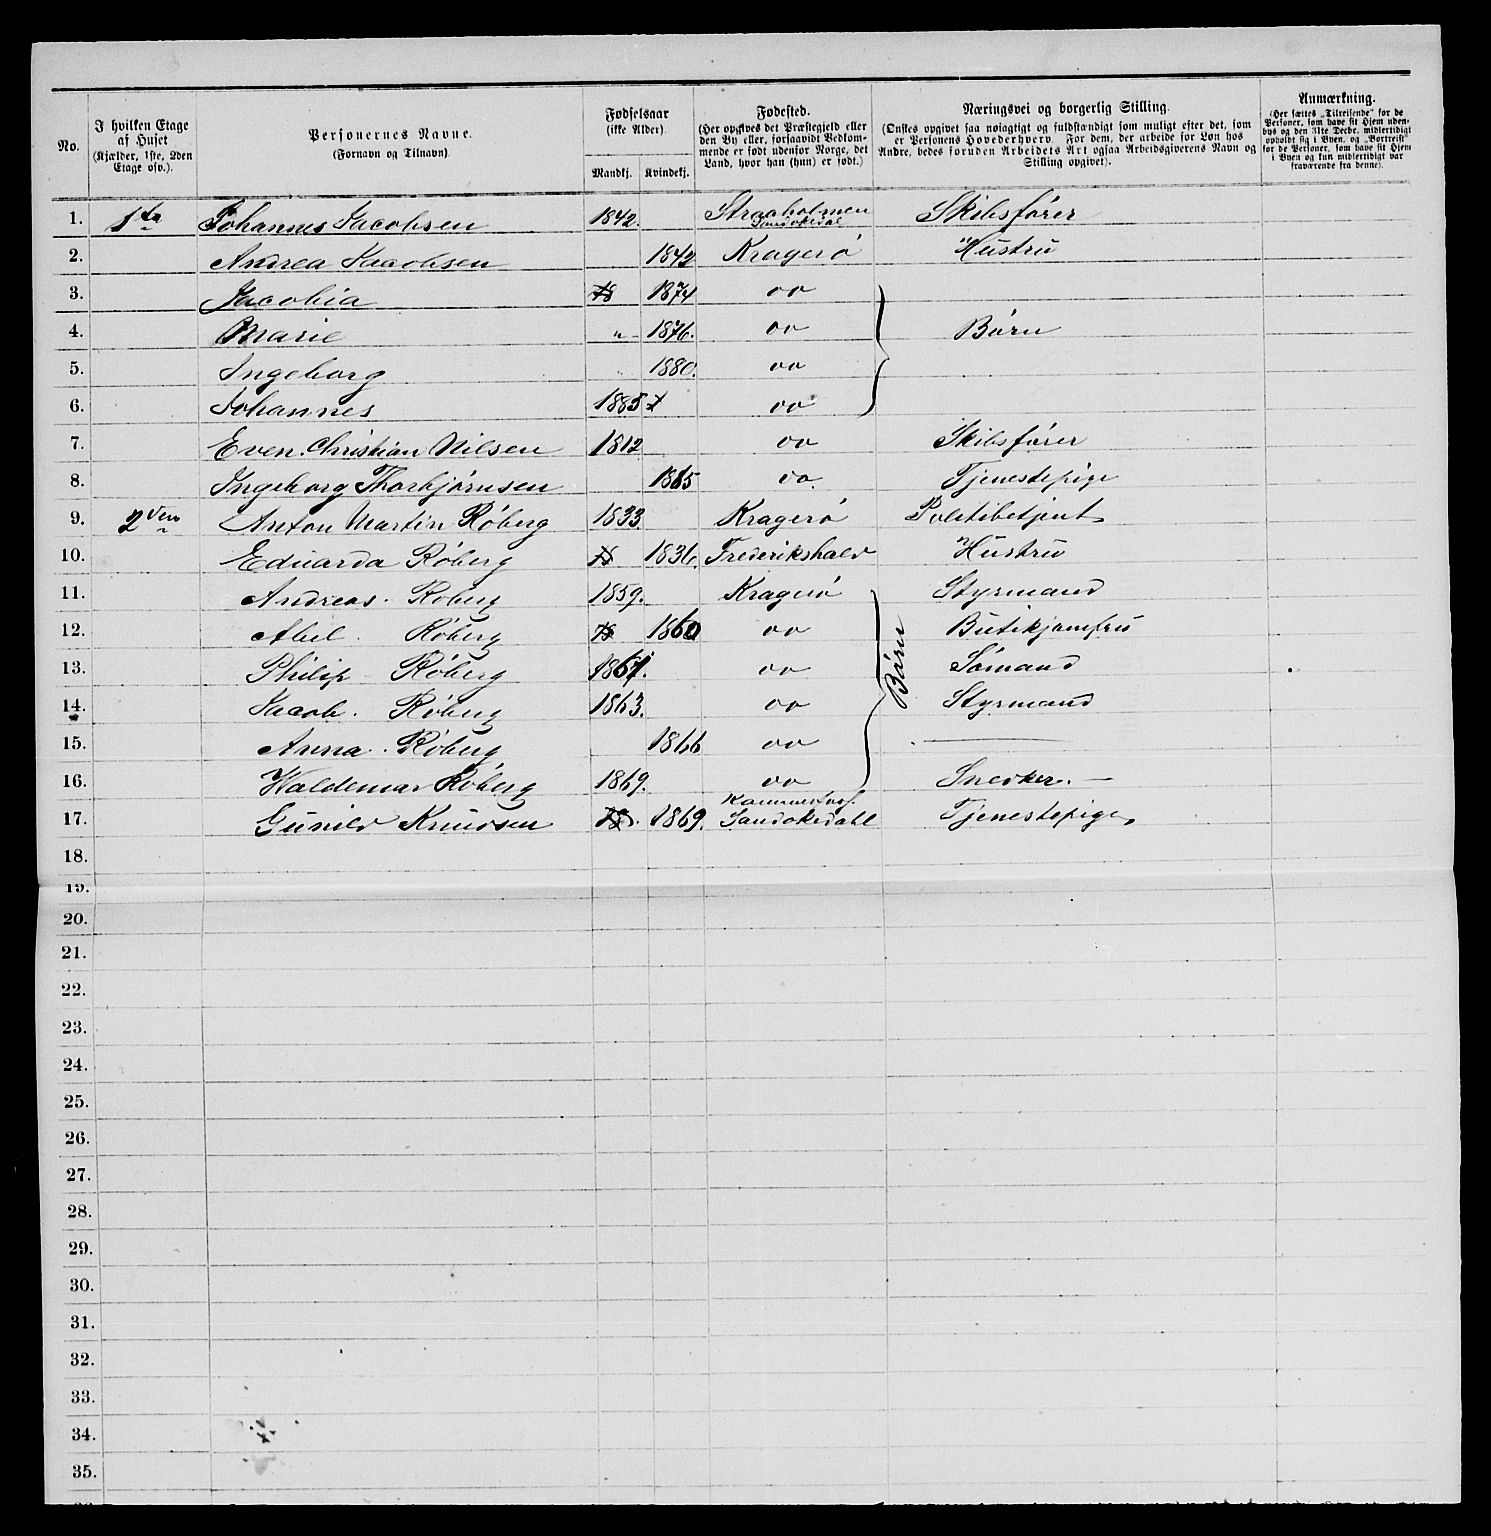 No. I hvilken Etage af Huset (Kjælder, 1ste, 2den Etage osv.). Personernes Navne. (Fornavn og Tilnavn) Fødselsaar (ikke Alder). Mandkj. Kvindekj. Fødested. (Her opgives det Præstegjeld eller den By eller, forsaavidt Vedkommende er født udenfor Norge, det Land, hvor han (hun) er født.) Næringsvei og borgerlig Stilling. (Ønskes opgivet saa nøiagtigt og fuldstændigt som muligt efter det, som er Personens Hovederhverv. For dem, der arbeide for Løn hos Andre, bedes foruden Arbeidets Art ogsaa Arbeidsgiverens Navn og Stilling opgivet). Anmærkning. (Her sættes „Tilreisende" for de Personer, som have sit Hjem udenbys og den 31te Decbr. midlertidigt opholdt sig i Byen, og „Bortreist" for de Personer, som have sit Hjem i Byen og kun midlertidigt var fraværende fra denne).
1. 1ste Johannes Jacobsen 1842. Straaholmen Sandøkedal Skibsfører
2. Andrea Jacobsen 1842 Kragerø Hustru
3. Jacobia 1874 oo
4. Marie " 1876. oo Børn
5. Ingeborg 1880. oo
6. Johannes 1885 oo
7. Even Christian Nilsen 1812 oo Skibsfører
8. Ingeborg Thorbjørnsen 1865 oo Tjenestepige
9. 2den Anton Martin Røberg 1833 Kragerø Politibetjent
10. Eduarda Røberg 1836. Frederikshald Hustru
11. Andreas Røberg 1859. Kragerø Styrmand
12. Abel Røberg 1860 oo Butikjomfru
13. Philip Røberg 1861. oo Børn Sømand
14. Jacob Røberg 1863. oo Styrmand
15. Anna Røberg 1866 oo
16. Waldemar Røberg 1869. oo Snedker. —
17. Gunild Knudsen 1869. Sandøkedahl Tjenestepige
18.
19.
20.
21.
22.
23.
24.
25.
26.
27.
28.
29.
30.
31.
32.
33.
34.
35.